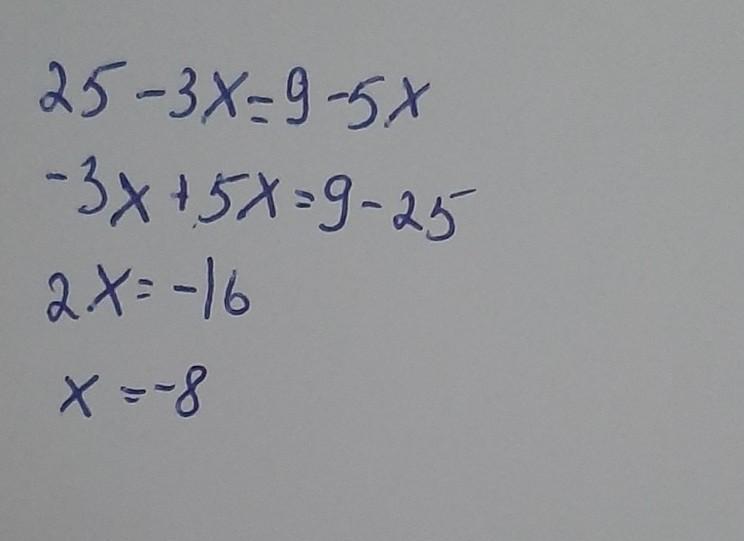 25-3x=9-5x
-3x+5x=9-25
2x=-16
x=-8